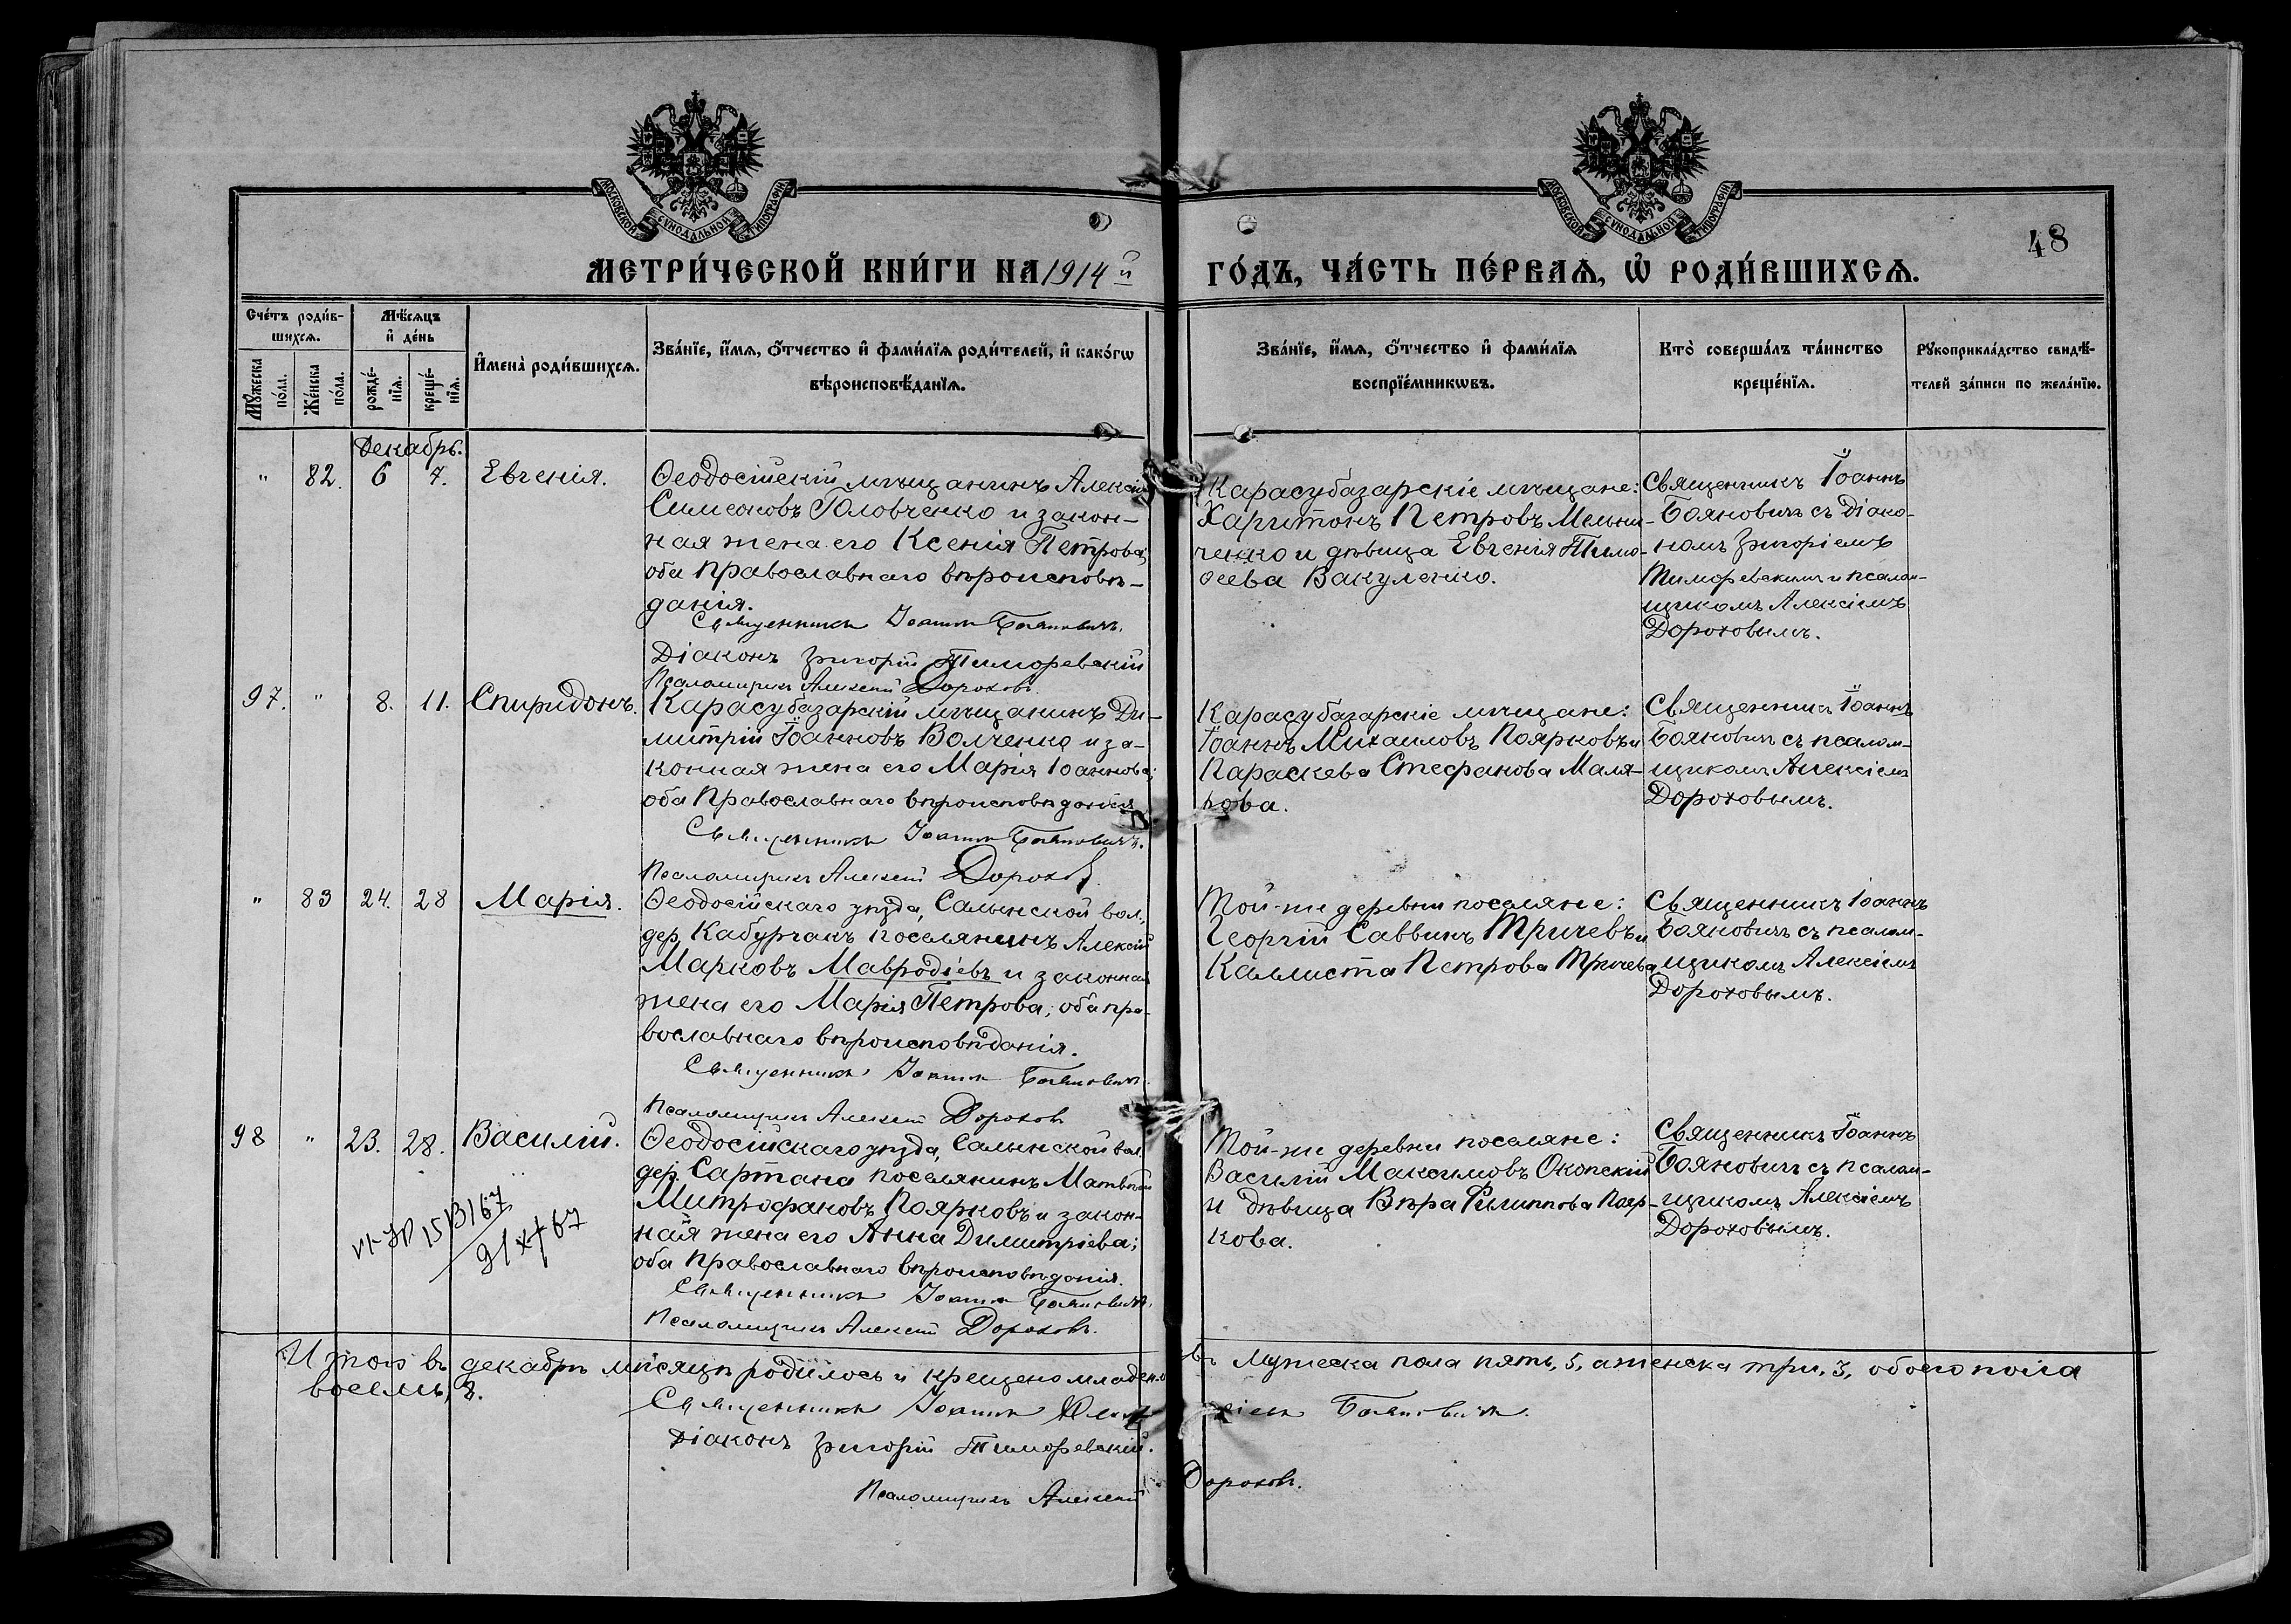 МОСКОВСКОЙ СѴНОДАЛЬНОЙ ТИПОГРАФІИ
МОСКОВСКОЙ СѴНОДАЛЬНОЙ ТИПОГРАФІИ
48
МЕТРИ́ЧЕСКОЙ КНИ́ГИ НА 1914 й
ГО́ДЪ, ЧА́СТЬ ПЕ́РВАѦ, Ѡ҆ РОДИ́ВШИХСѦ.
Сче́тъ роди́в-
шихсѧ.
Мѣ́сѧцъ
и҆ де́нь
Мꙋ́жеска
по́ла.
Же́нска
по́ла.
рожде́-
нїѧ.
креще́-
нїѧ.
И҆мена̀ роди́вшихсѧ.
Зва́нїе, и҆́мѧ, ѻ҆́тчество и҆ фами́лїѧ роди́телей, и҆ како́гѡ
вѣроисповѣ́данїѧ.
Зва́нїе, и҆́мѧ, ѻ҆́тчество и҆ фами́лїѧ
воспрїе́мникѡвъ.
Кто̀ соверша́лъ та́инство
креще́нїѧ.
Рꙋкоприкла́дство свидѣ́-
телей за́писи по жела́нїю.
Декабрь.
" 82. 6 7. Евгенія.
Ѳеодосійскій мѣщанинъ Алексій
Симеоновъ Головченко и закон-
ная жена его Ксенія Петрова;
оба православнаго вѣроисповѣ-
данія.
Священникъ Іоаннъ Бояновичъ.
Діаконъ Григорій Тиморевскій
Псаломщикъ Алексій Дороховъ.
Карасубазарскіе мѣщане:
Харитонъ Петровъ Мельни-
ченко и дѣвица Евгенія Тимо-
ѳеева Вакуленко.
Священникъ Іоаннъ
Бояновичъ съ діако-
номъ Григоріемъ
Тиморевскимъ и псалом-
щикомъ Алексіемъ
Дороховымъ.
97. " 8. 11. Спиридонъ.
Карасубазарскій мѣщанинъ Ди-
митрій Іоанновъ Волченко и за-
конная жена его Марія Іоаннова;
оба православнаго вѣроисповѣданія
Священникъ Іоаннъ Бояновичъ.
Псаломщикъ Алексій Дороховъ.
Карасубазарскіе мѣщане:
Іоаннъ Михаиловъ Поярковъ и
Параскева Стефанова Маля-
рова.
Священникъ Іоаннъ
Бояновичъ съ псалом-
щикомъ Алексіемъ
Дороховымъ.
" 83 24. 28 Марія.
Ѳеодосійскаго уѣзда, Салынской вол.
дер. Кабурчакъ поселянинъ Алексій
Марковъ Мавродіевъ и законная
жена его Марія Петрова; оба пра-
вославнаго вѣроисповѣданія.
Священникъ Іоаннъ Бояновичъ.
Псаломщикъ Алексій Дороховъ
Той-же деревни поселяне:
Георгій Саввинъ Тричевъ и
Каллиста Петрова Тричева
Священникъ Іоаннъ
Бояновичъ съ псалом-
щикомъ Алексіемъ
Дороховымъ.
98 " 23. 28. Василій.
Ѳеодосійскаго уѣзда, Салынской вол.
дер. Сартана поселянинъ Матвѣй
Митрофановъ Поярковъ и закон-
ная жена его Анна Димитріева;
оба православнаго вѣроисповѣданія.
Священникъ Іоаннъ Бояновичъ.
Псаломщикъ Алексій Дороховъ.
Той-же деревни поселяне:
Василій Максимовъ Окопскій
и дѣвица Вѣра Филиппова Пояр-
кова.
Священникъ Іоаннъ
Бояновичъ съ псалом-
щикомъ Алексіемъ
Дороховымъ.
Итого въ декабрѣ мѣсяцѣ родилось и крещено младен. въ мужеска пола пять, 5, а женска три, 3, обоего пола
восемь, 8.
Священникъ Іоаннъ Бояновичъ.
Діаконъ Григорій Тиморевскій.
Псаломщикъ Алексій Дороховъ.